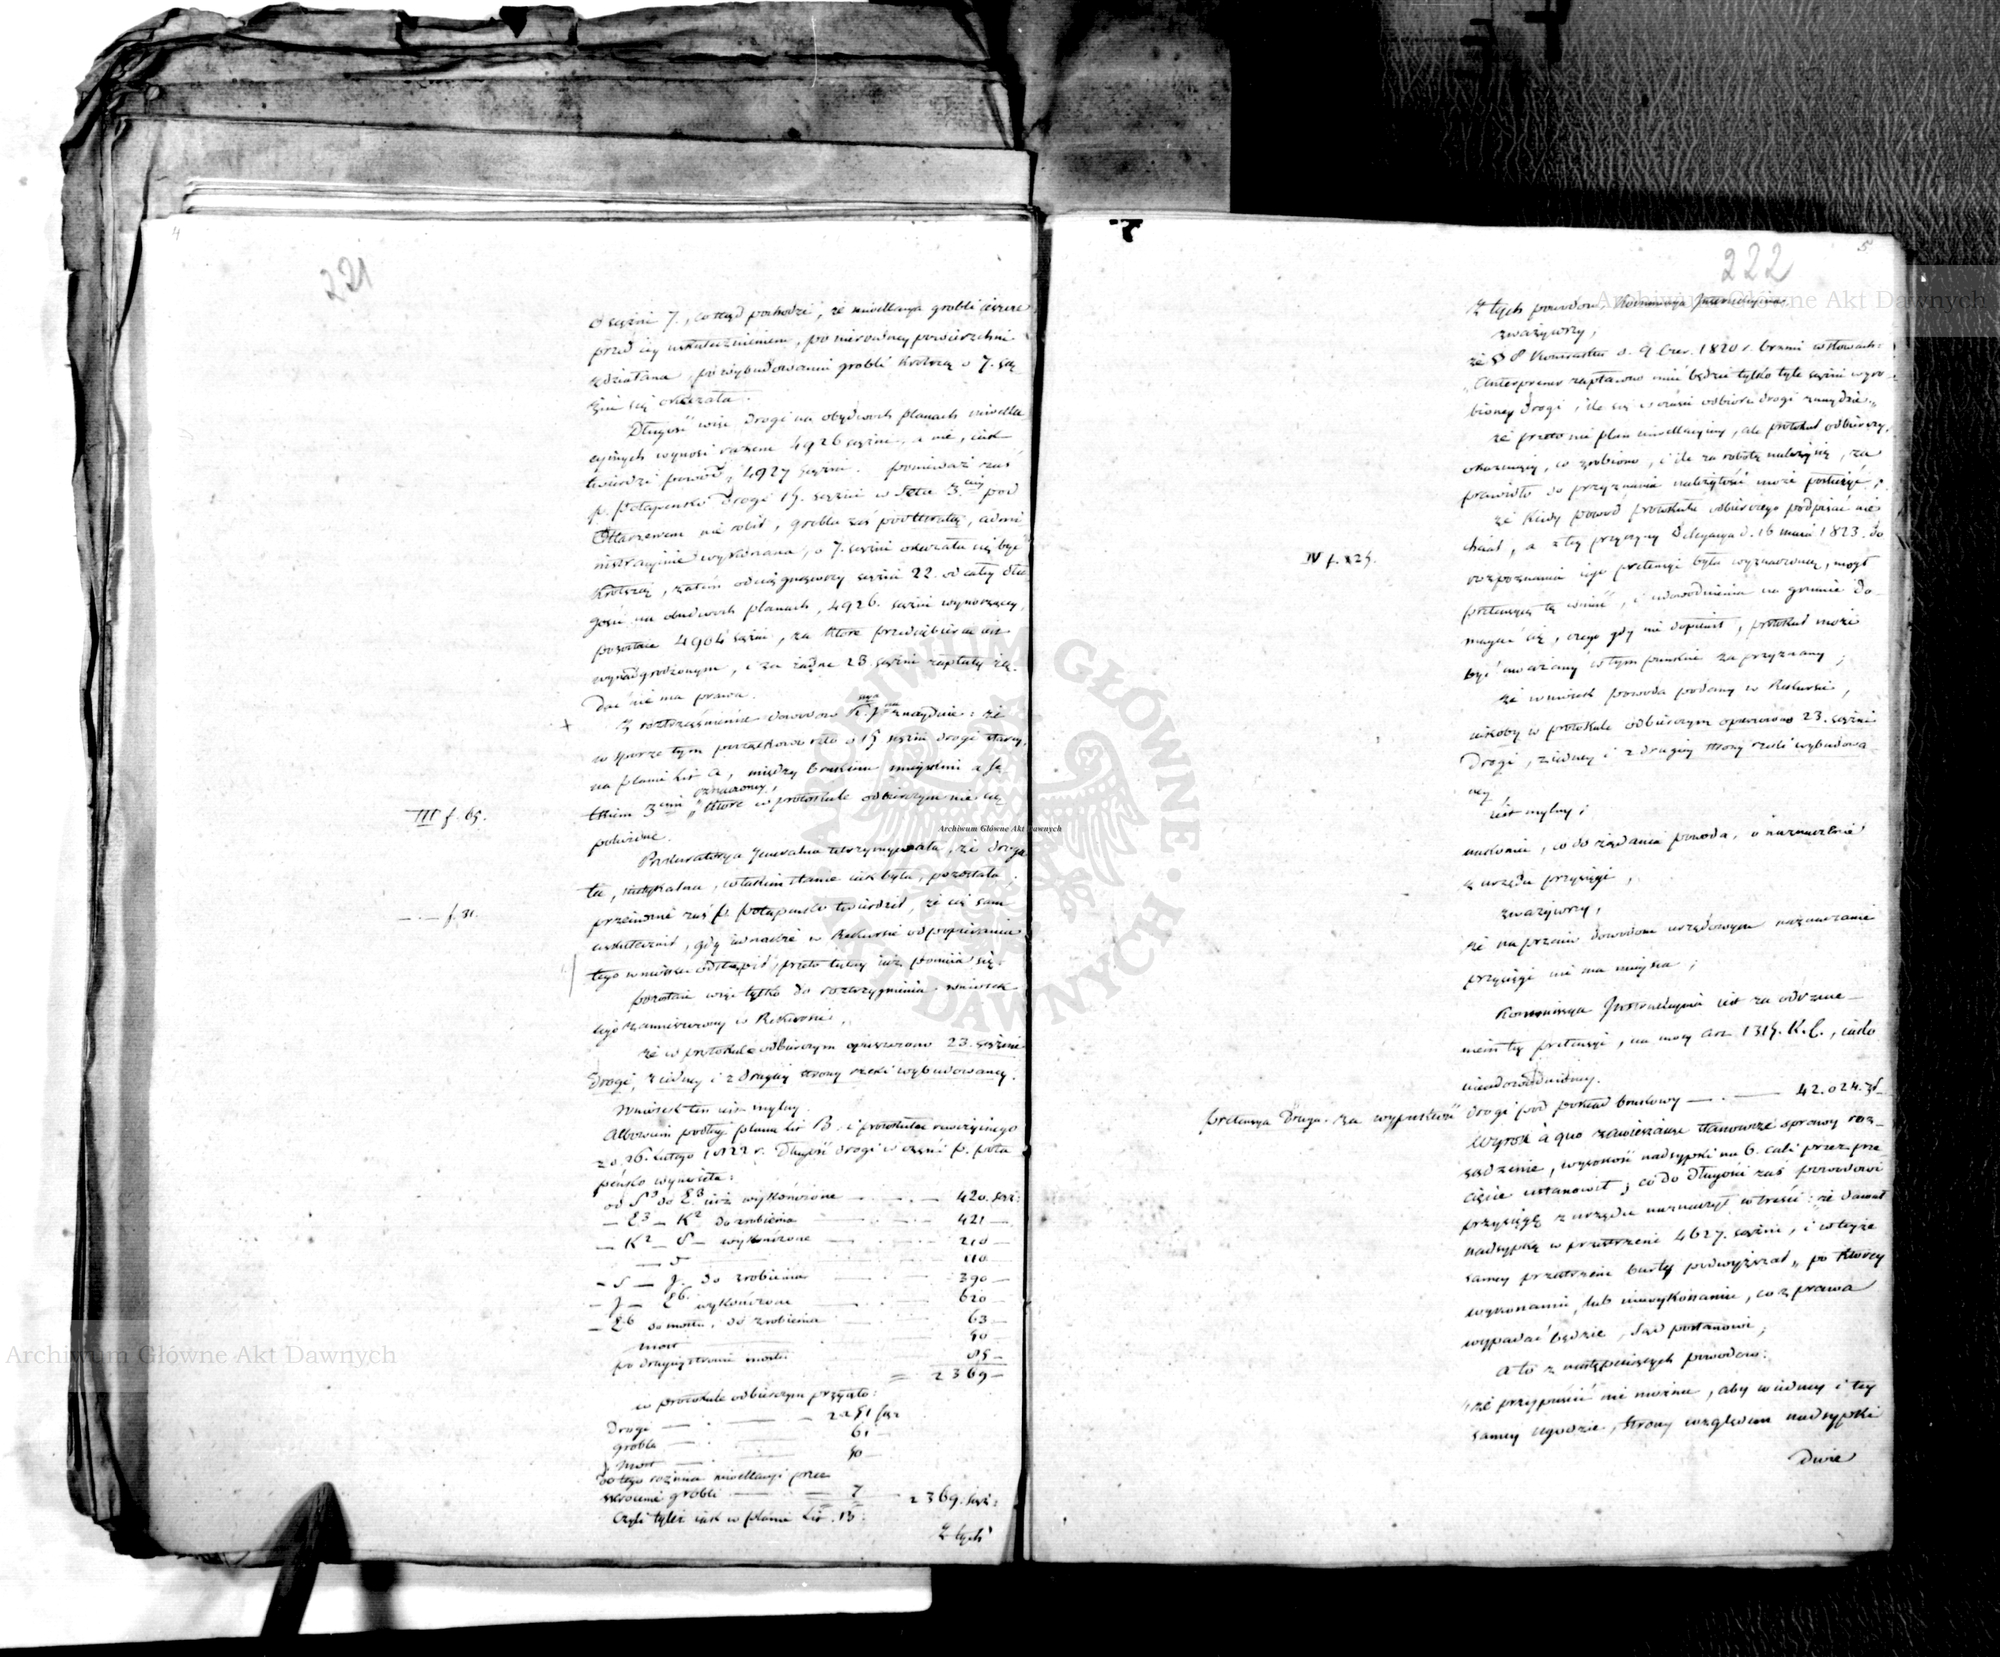 4
221
o sążni 7., co ztąd pochodzi, że niwellacya grobli ieszcze
przed iey uskutecznieniem, po nierówney powierzchni
zdziałana, po wybudowaniu grobli krótszą o 7. są
żni się okazała.
Długość więc drogi na obydwóch planach niwella
cyinych wynosi razem 4926 sążni, a nie, iak
twierdzi powód, 4927 sążni. ponieważ zaś
p. Potapenko drogi 15. sążni w Sztu 3.cim pod
Ołtarzewem nie robił, grobla zaś
nistracyinie wykonana, o 7. sążni okazała się być
krótszą, zatém odciągnąwszy sążni 22. od całey dłu
gości na obudwóch planach, 4926. sążni wynoszącey,
pozostaie 4904 sążni, za które przedsiębierca iest
wynadgrodzonym, i za żadne 23. sążni zapłaty żą-
dać nie ma prawa.
Z roztrząśnienia dowodów K. J. znayduie: że
w sporze tym początkowo szło o 15 sążni drogi starey,
na planie Lit. A, między brukiem a Sz
tkiem 3cim oznaczoney, które w protokule odbiorczym nie są
policzone.
III f. 65.
Prokuratorya Jeneralna utrzymywała, że droga
ta, iuż, w takim stanie iak była, pozostała;
— . — f. 31.
przeciwnie zaś p. Potapenko twierdził, że ią sam
uskutecznił, gdy iednakże w Rekursie od popierania
tego wniosku odstąpił, przeto tutay iuż pomiia się.
pozostaie więc tylko do rozstrzygnienia wniosek
iego zamieszczony w Rekursie,
że w protokule odbiorczym opuszczono 23. sążnie
drogi, z iedney i z drugiey strony rzeki wybudowaney.
Wniosek ten iest mylny.
Albowiem podług planu Lit B. i protokułu rewizyinego
z d. 26. Lutego 1822 r. Długość drogi w części p. Pota
penko wynosiła:
od S² do E³ iuż wykończone — . — 420. sąż:
— E³ — K² do zrobienia — . — 421 —
— K² — S — wykończone — . — 210 —
— 5 — 110
— S — J. do zrobienia — 390 —
— J — E6 wykończone — 620 —
— E6 do mostu, do zrobienia — 63 —
most — 50 —
po drugiey stronie mostu — 85 —
= 2369 —
w protokule odbiorczym przyięto:
drogi — . — 2251 sąż
grobla — . — 61 —
i most — . — 50 —
do tego różnica niwellacyi przez
skrócenie grobli — . — 7 — 2369. sąż:
Czyli tyleż iak w planie Lit. B.
Z tych
5
222
Z tych powodów, Kommissya Instrukcyina
zważywszy,
że § 8 Kontraktu d. 9 Czer. 1820 r. brzmi w słowach:
„Anterprener zapłacone mieć będzie tylko tyle sążni wyro-
bioney drogi, ile się w czasie odbioru drogi znaydzie„
że przeto nie plan niwellacyiny, ale protokuł odbiorczy,
okazuiący, co zrobione, i ile za robotę należy się, za
prawidło do przyznania należytości może posłużyć;
że kiedy powód protokułu odbiorczego podpisać nie
chciał, a z tey przyczyny Delegacya d. 16 maia 1823. do
IV f. 125.
rozpoznania iego pretensyi była wyznaczona, mógł
pretensyą tę wnieść, i udowodnienia na gruncie do-
magać się, czego gdy nie dopełnił, protokuł może
być uważany w tym punkcie za przyznany;
że wniosek powoda podany w Rekursie,
iakoby w protokule odbiorczym opuszczono 23. sążnie
drogi, z iedney i z drugiey strony rzeki wybudowa-
ney,
iest mylny;
nakoniec, co do żądania powoda, o naznaczenie
z urzędu przysięgi,
zważywszy,
że na przeciw dowodom urzędowym naznaczenie
przysięgi nie ma mieysca;
Kommissya Instrukcyina iest za odrzuce-
niem tey pretensyi, na mocy art. 1315. K. C., iako
nieudowodnioney.
pretensya Druga. za wypuszczenie drogi pod pokład brukowy — . — 42.024. zł
Wyrok à quo zawieszaiąc stanowcze sprawy roz-
sądzenie, wysokość nadsypki na 6. cali przez prze
cięcie ustanowił; co do długości zaś powodowi
przysięgę z urzędu naznaczył w treści: że dawał
nadsypkę w przestrzeni 4627. sążni, i w teyże
samey przestrzeni burty podwyższał„ po którey
wykonaniu, lub niewykonaniu, co z prawa
wypadać będzie, Sąd postanowi;
A to z następuiących powodów:
„że przypuścić nie można, aby w iedney i tey
samey ugodzie, strony względem nadsypki
Dwie
Archiwum Główne Akt Dawnych
Archiwum Główne Akt Dawnych
Archiwum Główne Akt Dawnych
ARCHIWUM GŁÓWNE · AKT DAWNYCH ·